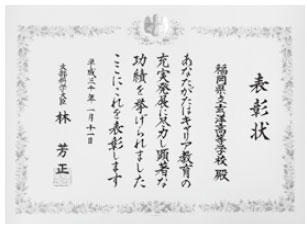 表彰状
福岡県立玄洋高等学校 殿
あなたがたはキャリア教育の
充実発展に尽力し顕著な
功績を挙げられました
ここにこれを表彰します
平成三十年一月十一日
文部科学大臣 林 芳正